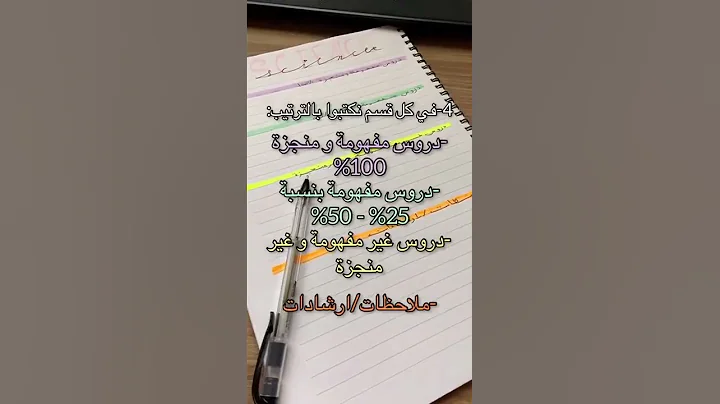 science
4-في كل قسم نكتبوا بالترتيب:
-دروس مفهومة و منجزة
%100
-دروس مفهومة بنسبة
%50 - %25
-دروس غير مفهومة و غير
منجزة
-ملاحظات/ارشادات